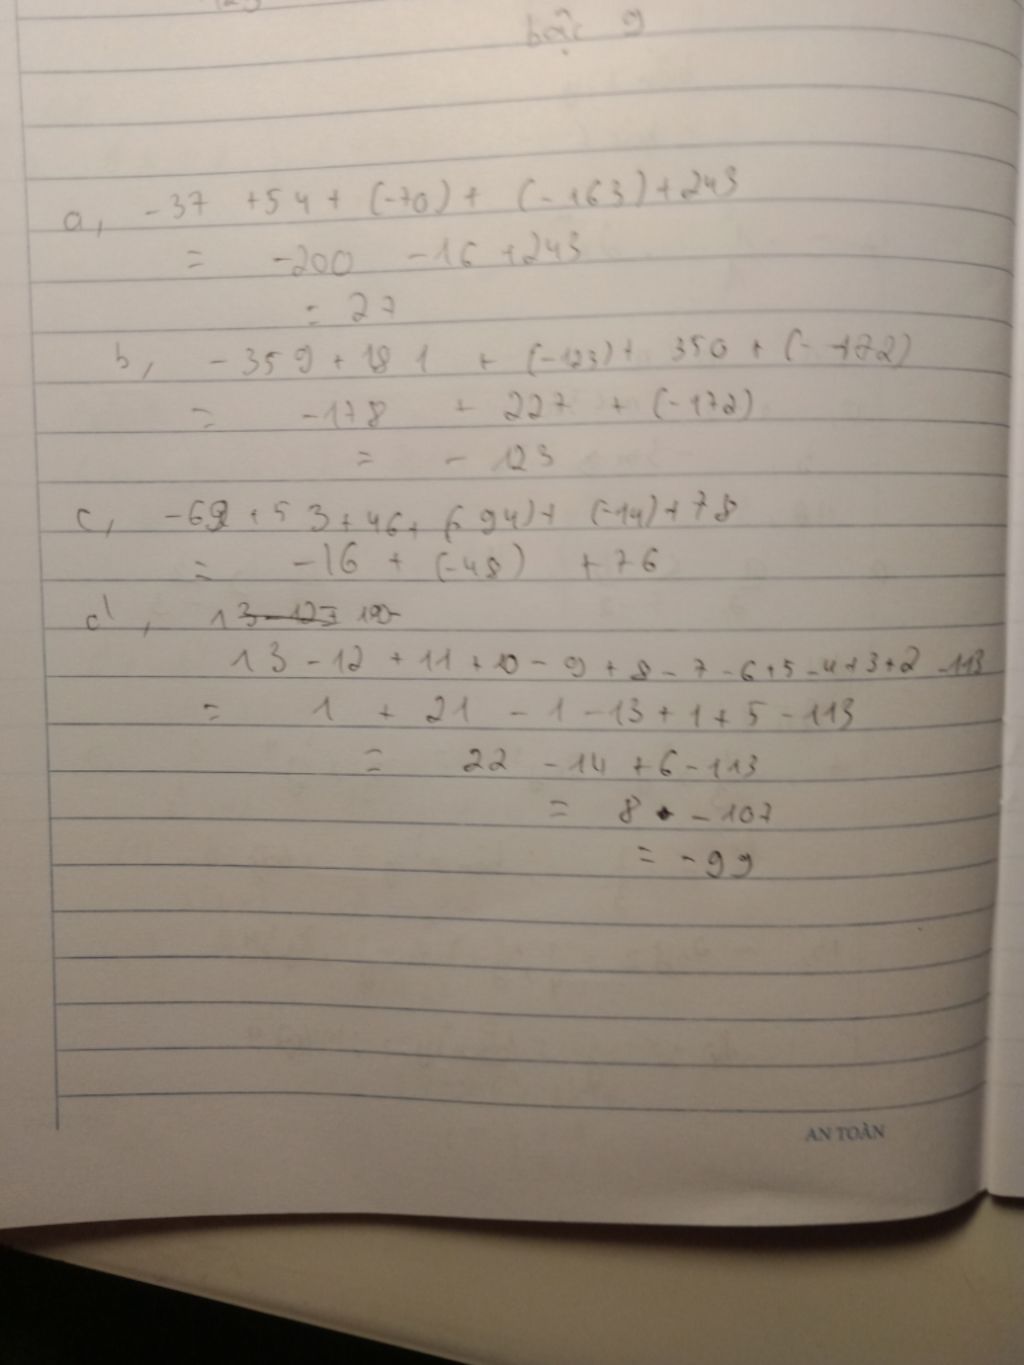 bậc 9
a, -37 +54 + (-70) + (-163) + 243
= -200 -16 +243
= 27
b, -359 + 181 + (-123) + 350 + (-172)
= -178 + 227 + (-172)
= -123
c, -69 + 53 + 46 + (-94) + (-14) + 78
= -16 + (-48) + 76
d,
13 - 12 + 11 + 10 - 9 + 8 - 7 - 6 + 5 - 4 + 3 + 2 - 113
= 1 + 21 - 1 - 13 + 1 + 5 - 113
= 22 - 14 + 6 - 113
= 8 - 107
= -99
AN TOÀN